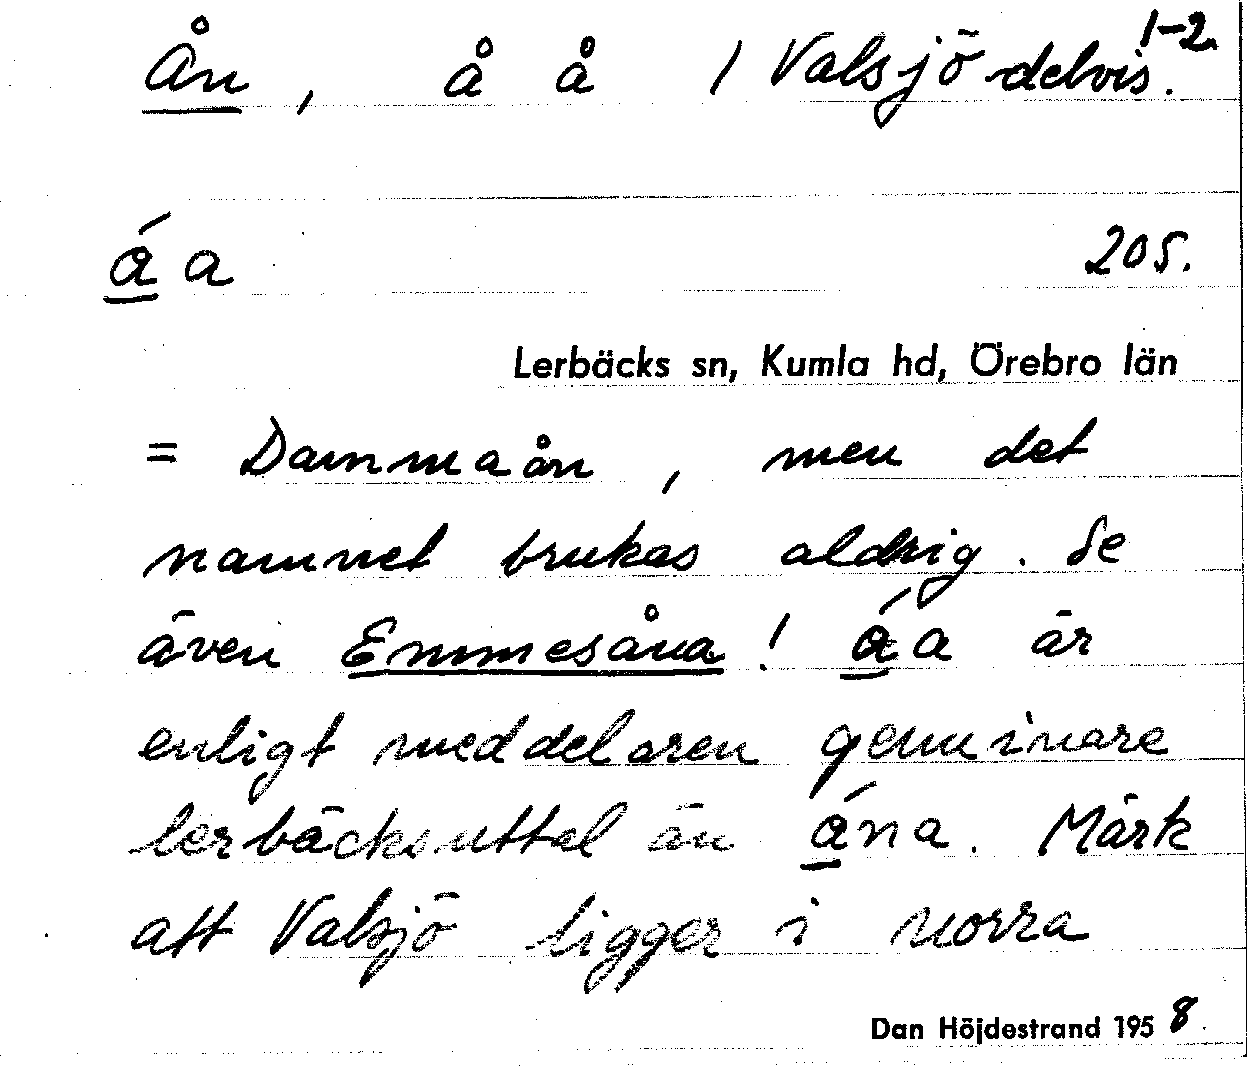 Ån, å å / Valsjö delvis. 1-2
á̱ a 205.
Lerbäcks sn, Kumla hd, Örebro län
= Dammaån, men det
namnet brukas aldrig. Se
även Emmesåna! á̱ a är
enligt meddelaren genuinare
lerbäcksuttal än á̱na. Märk
att Valsjö ligger i norra
Dan Höjdestrand 1958